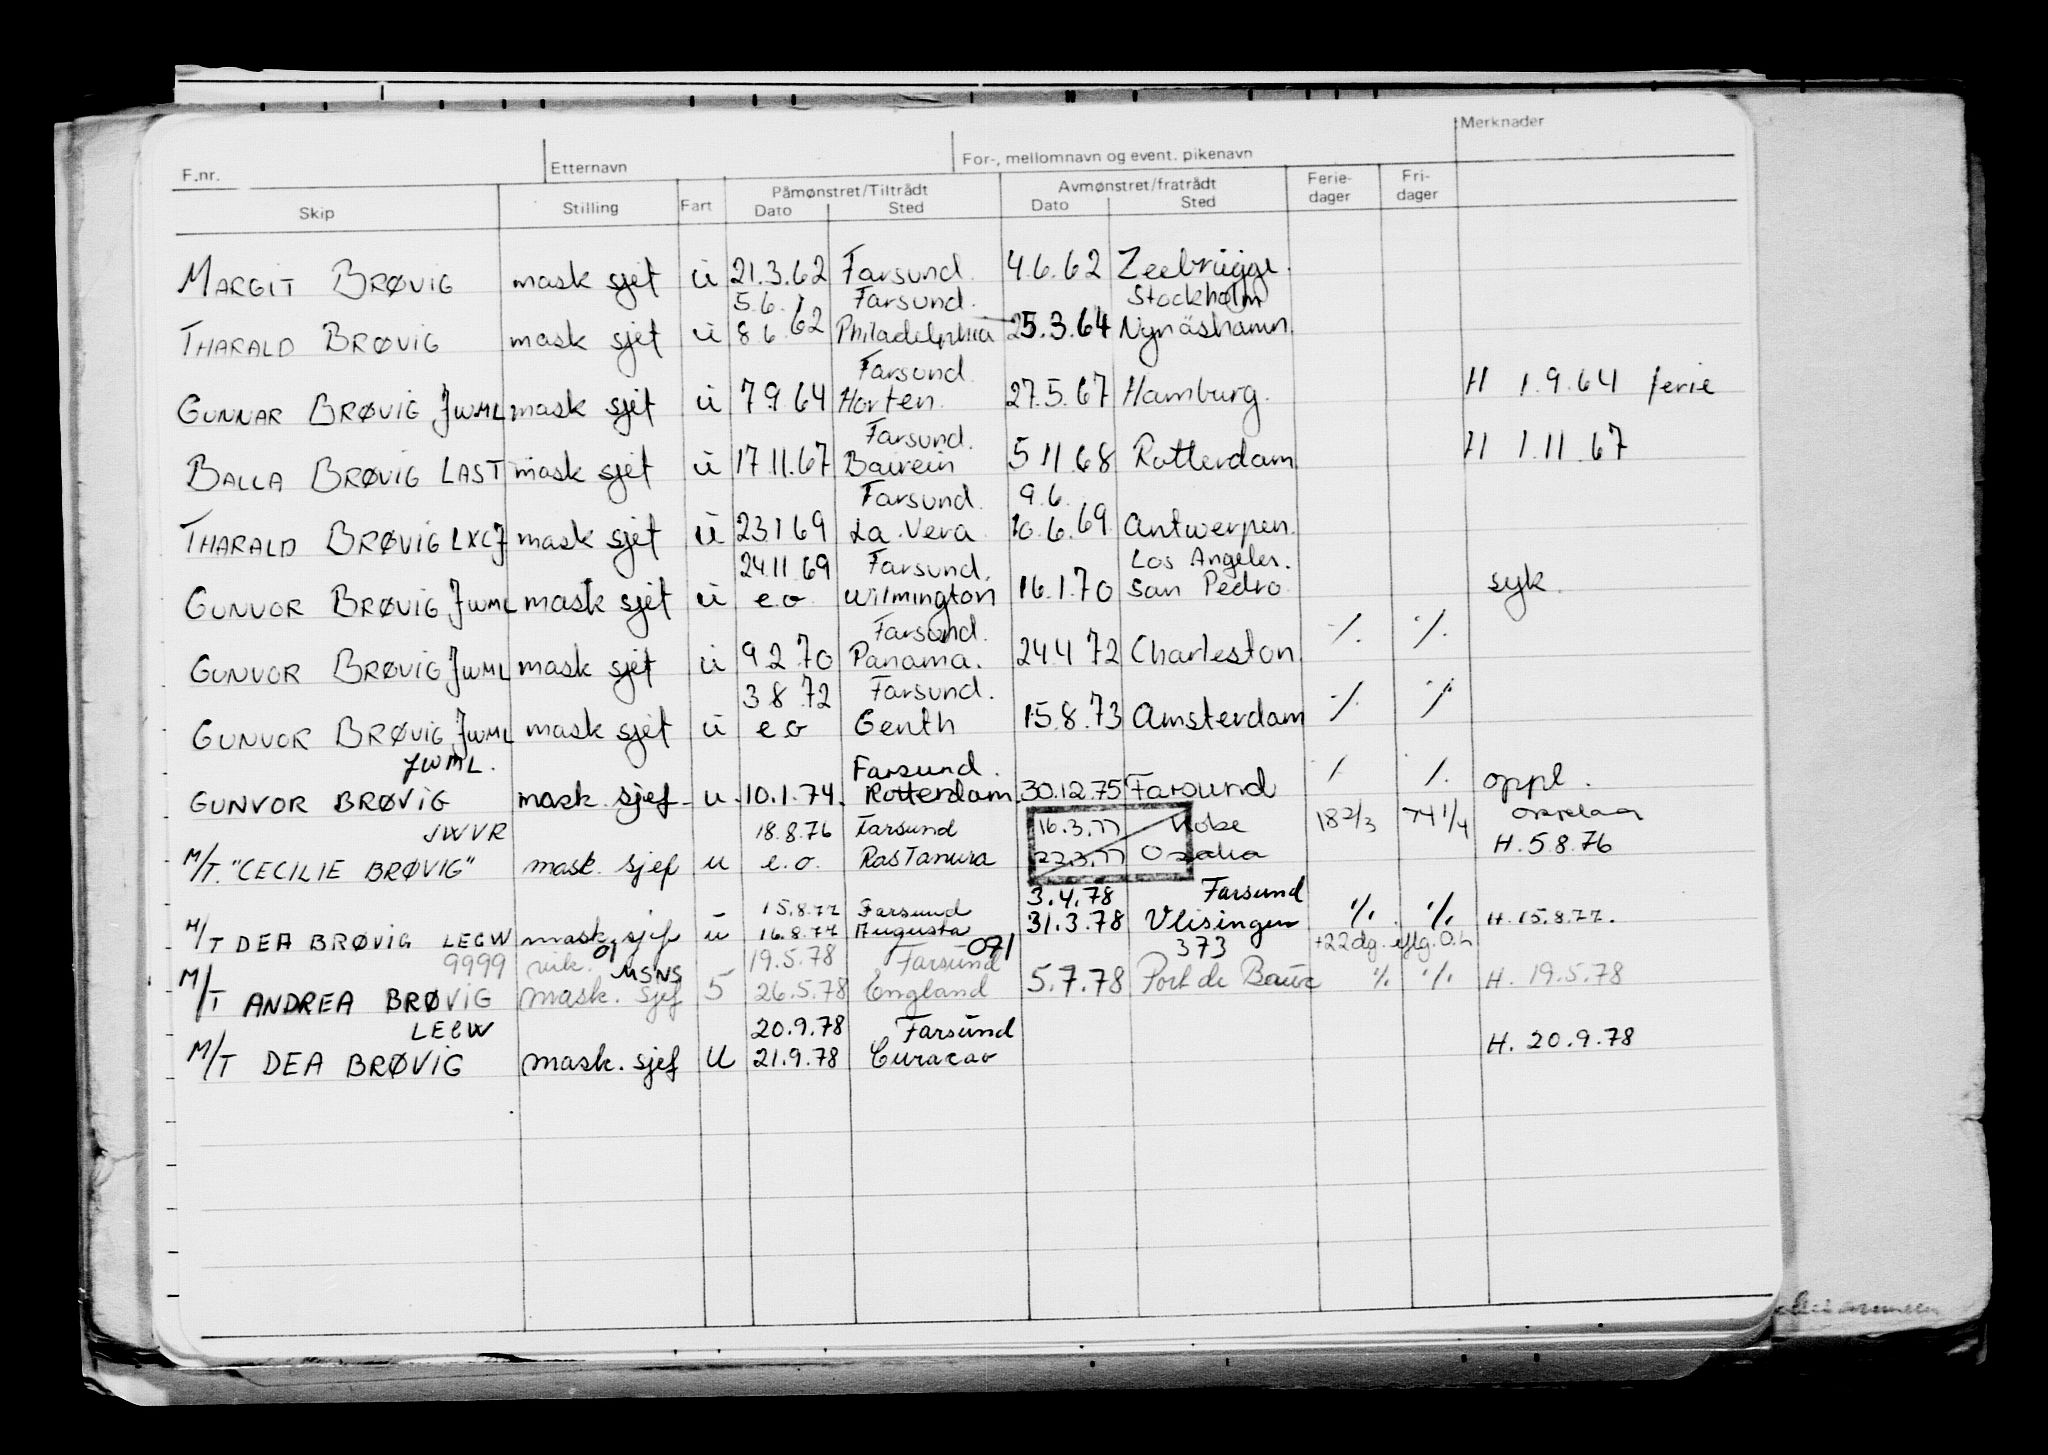 F.nr. Etternavn For-, mellomnavn og event. pikenavn Merknader
Skip Stilling Fart Påmønstret/Tiltrådt Avmønstret/fratrådt Ferie-dager Fri-dager
Dato Sted Dato Sted
MARGIT BRØVIG mask sjef u 21.3.62 Farsund. 4.6.62 Zeebrügge.
5.6. Farsund. Stockholm
THARALD BRØVIG mask sjef u 8.6.62 Philadelphia 25.3.64 Nynäshamn.
Farsund
GUNNAR BRØVIG JWML mask sjef u 7.9.64 Horten. 27.5.67 Hamburg. H 1.9.64 ferie
Farsund.
BALLA BRØVIG LAST mask sjef u 17.11.67 Bairein 5 11 68 Rotterdam H 1.11.67
Farsund. 9.6.
THARALD BRØVIG LXCJ mask sjef u 23 1 69 La Vera 10.6.69 Antwerpen.
24.11.69 Farsund. Los Angeles.
GUNVOR BRØVIG JWML mask sjef u e.o. Wilmington 16.1.70 San Pedro syk.
Farsund. ./. ./.
GUNVOR BRØVIG JWML mask sjef u 9 2 70 Panama. 24.4 72 Charleston.
3 8 72 Farsund. ./. ./.
GUNVOR BRØVIG JWML mask sjef u e.o Genth 15.8.73 Amsterdam
JWML. Farsund. ./. ./.
GUNVOR BRØVIG mask. sjef. u. 10.1.74. Rotterdam. 30.12.75 Farsund oppl.
JWVR 18.8.76 Farsund 16.3.77 Kobe 18 2/3 74 1/4
M/T. "CECILIE BRØVIG" mask. sjef u e.o. Ras Tanura 22.3.77 Osaka H. 5.8.76
3.4.78 Farsund
15.8.77 Farsund
M/T DEA BRØVIG LECW mask. sjef u 16.8.77 Augusta 31.3.78 Vlisingen ./. ./. H. 15.8.77.
9999 vik. 01 MSNS 19.5.78 Farsund 091 373 +22dg.
M/T ANDREA BRØVIG mask. sjef 5 26.5.78 England 5.7.78 Port de Bouc ./. ./. H. 19.5.78
LECW 20.9.78 Farsund
M/T DEA BRØVIG mask. sjef U 21.9.78 Curacao H. 20.9.78